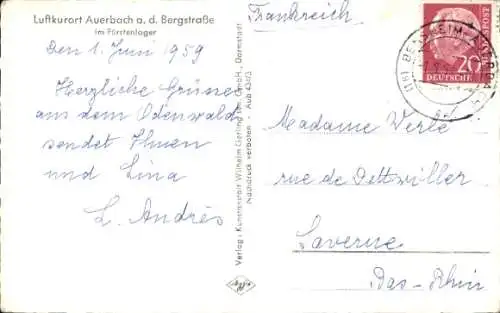 Luftkurort Auerbach a. d. Bergstraße
im Fürstenlager
den 1. Juni 1959
Herzliche Grüsse
aus dem Odenwald
sendet Ihnen
und Lina
L. Andrès
Verlag: Kunstanstalt Wilhelm Gerling GmbH., Darmstadt
Nachdruck verboten Aub 434/3
Frankreich
DEUTSCHE
POST
20
BENSHEIM-AUERBACH
Madame Verlé
rue de Dettwiller
Saverne
Bas-Rhin